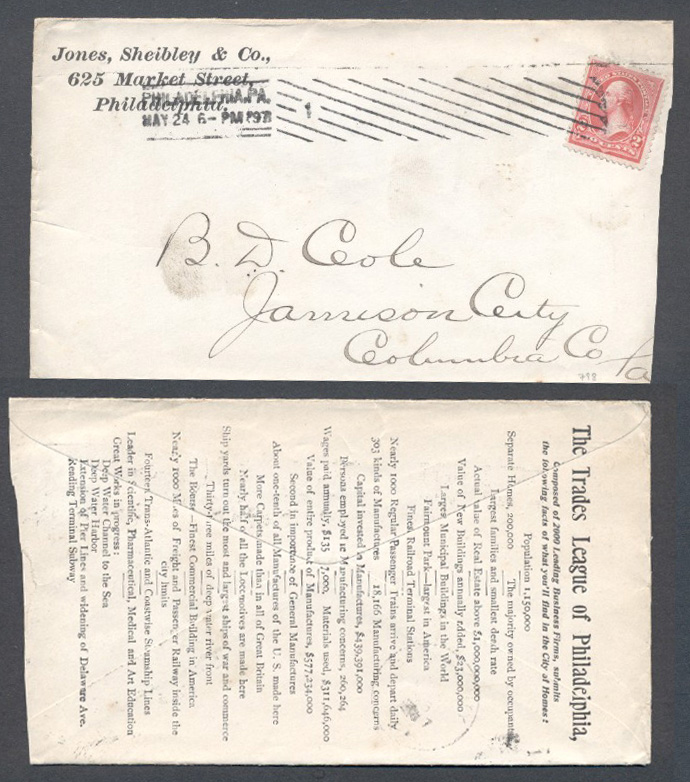 Jones, Sheibley & Co.,
625 Market Street,
Philadelphia.
PHILADELPHIA, PA.
MAY 24 6-PM '97
TWO CENTS 2
B. D. Cole
Jamison City
Columbia Co Pa
798
The Trades League of Philadelphia,
Composed of 2009 Leading Business Firms, submits
the following facts of what you'll find in the City of Homes:
Population 1,150,000
Separate Homes, 200,000 The majority owned by occupants
Largest families and smallest death rate
Actual value of Real Estate above $1,000,000,000
Value of New Buildings annually added, $23,000,000
Largest Municipal Buildings in the World
Fairmount Park—largest in America
Finest Railroad Terminal Stations
Nearly 1000 Regular Passenger Trains arrive and depart daily
303 kinds of Manufactures 18,166 Manufacturing concerns
Capital invested in Manufactures, $439,391,000
Persons employed in Manufacturing concerns, 260,264
Wages paid annually, $135 ,000, Materials used, $311,646,000
Value of entire product of Manufactures, $577,234,000
Second in importance of General Manufactures
About one-tenth of all Manufactures of the U. S. made here
More Carpets made than in all of Great Britain
Nearly half of all the Locomotives are made here
Ship yards turn out the most and largest ships of war and commerce
Thirty-three miles of deep water river front
The Bourse—Finest Commercial Building in America
Nearly 1000 Miles of Freight and Passenger Railway inside the
city limits
Fourteen Trans-Atlantic and Coastwise Steamship Lines
Leader in Scientific, Pharmaceutical, Medical and Art Education
Great Works in progress:
Deep Water Channel to the Sea
Deep Water Harbor
Extension of Pier Lines and widening of Delaware Ave.
Reading Terminal Subway